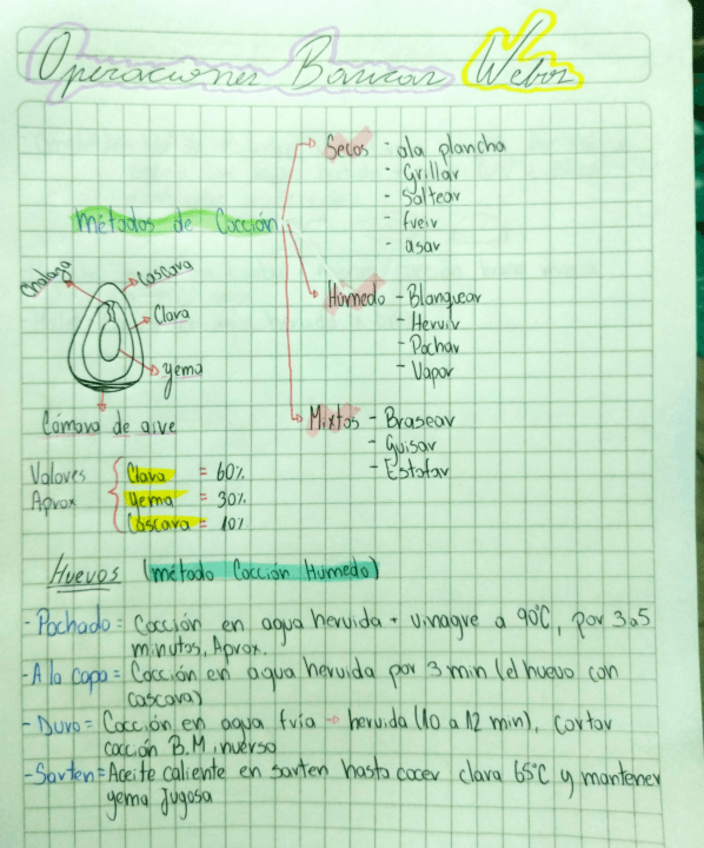 Operaciones Basicas Webos
Métodos de Cocción
Secos - ala plancha
- Grillar
- Saltear
- freir
- asar
Húmedo - Blanquear
- Hervir
- Pochar
- Vapor
Mixtos - Brasear
- Guisar
- Estofar
Chalaza
Cascara
Clara
yema
Cámara de aire
Valores Aprox
Clara = 60%
yema = 30%
Cáscara = 10%
Huevos (método Cocción Humedo)
- Pochado = Cocción en agua hervida + vinagre a 90°C, por 3 a 5
minutos, Aprox.
- A la copa = Cocción en agua hervida por 3 min (el huevo con
cascara)
- Duro = Cocción en agua fria → hervida (10 a 12 min), cortar
cocción B.M inverso
- Sarten = Aceite caliente en sarten hasta cocer clara 65°C y mantener
yema Jugosa